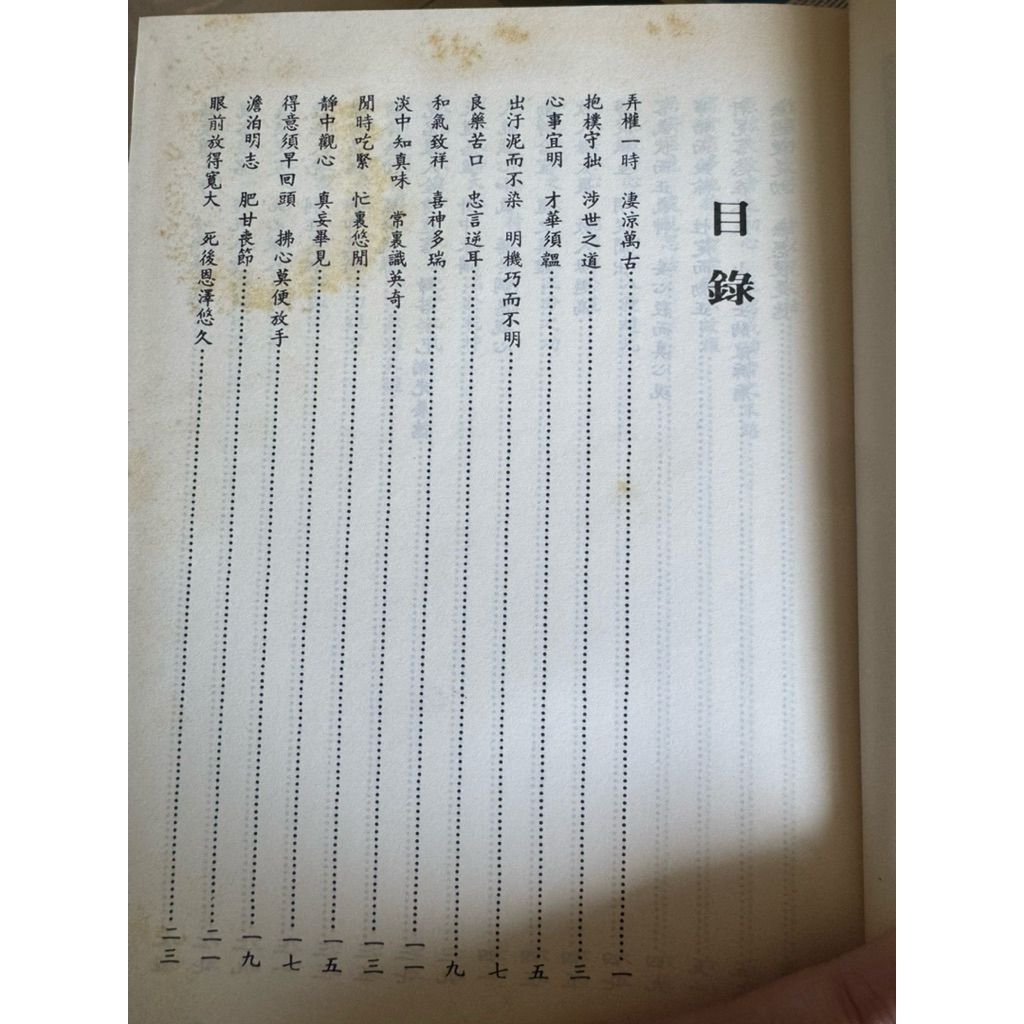 目錄
弄權一時　淒涼萬古……一
抱樸守拙　涉世之道……三
心事宜明　才華須韞……五
出汙泥而不染　明機巧而不明……七
良藥苦口　忠言逆耳……九
和氣致祥　喜神多瑞……一一
淡中知真味　常裏識英奇……一三
閒時吃緊　忙裏悠閒……一五
靜中觀心　真妄畢見……一七
得意須早回頭　拂心莫便放手……一九
澹泊明志　肥甘喪節……二一
眼前放得寬大　死後恩澤悠久……二三